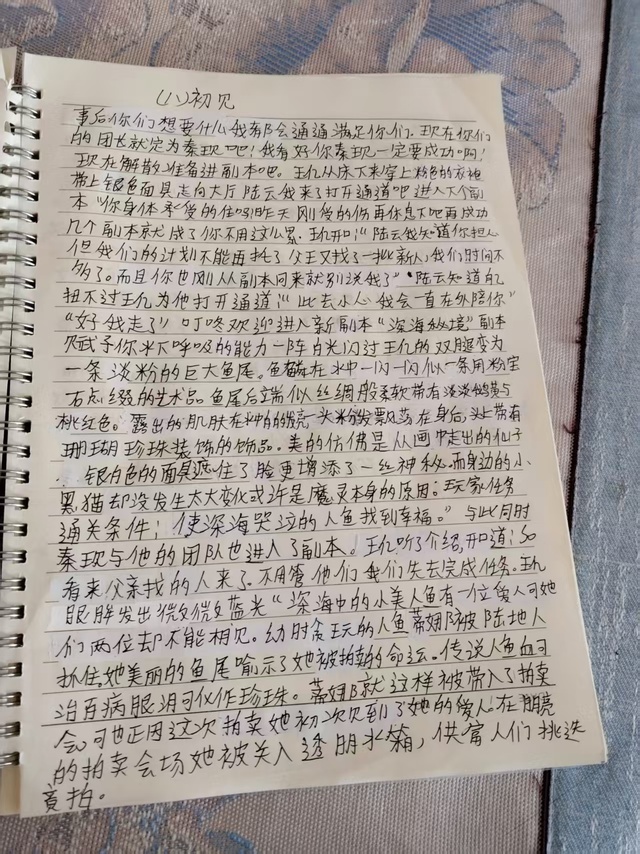 (八)初见
事后你们想要什么我都会通通满足你们。现在你们
的团长就定为秦现吧！我看好你秦现一定要成功啊！
现在解散准备进副本吧。王亿从床下来穿上粉色的衣袍
带上银色面具走向大厅陆云我来了打开通道吧进入下个副
本"你身体承受的住吗昨天刚受的伤再休息下吧再成功
几个副本就成了你不用这么累。王亿开口："陆云我知道你担心
但我们的计划不能再拖了父王又找了一批新人，我们时间不
够了。而且你也刚从副本回来就别说我了""陆云知道自己
扭不过王亿为他打开通道："此去小心我会一直在外陪你"
"好我走了"叮咚欢迎进入新副本"深海秘境"副本
赋予你水下呼吸的能力一阵白光闪过王亿的双腿变为
一条淡粉的巨大鱼尾。鱼鳞在水中一闪一闪似一条用粉宝
石点缀的艺术品。鱼尾后端似丝绸般柔软带有淡淡鹅黄与
桃红色。露出的肌肤在水中白的发亮一头粉发飘荡在身后，头上带有
珊瑚珍珠装饰的饰品。美的仿佛是从画中走出的仙子
银白色的面具遮住了脸更增添了一丝神秘。而身边的小
黑猫却没发生太大变化或许是魔灵本身的原因。玩家任务
通关条件：使深海哭泣的人鱼找到幸福。"与此同时
秦现与他的团队也进入了副本。王亿听了介绍，开口道：So
看来父亲找的人来了。不用管他们我们先去完成任务。王亿
眼眸发出微微蓝光"深海中的小美人鱼有一位爱人可她
们两位却不能相见。幼时贪玩的人鱼蒂娜被陆地人
抓住她美丽的鱼尾喻示了她被拍卖的命运。传说人鱼血可
治百病眼泪可化作珍珠。蒂娜就这样被带入了拍卖
会。可也正因这次拍卖她初次见到了她的爱人。在
的拍卖会场她被关入透明水箱，供富人们挑选
竟拍。